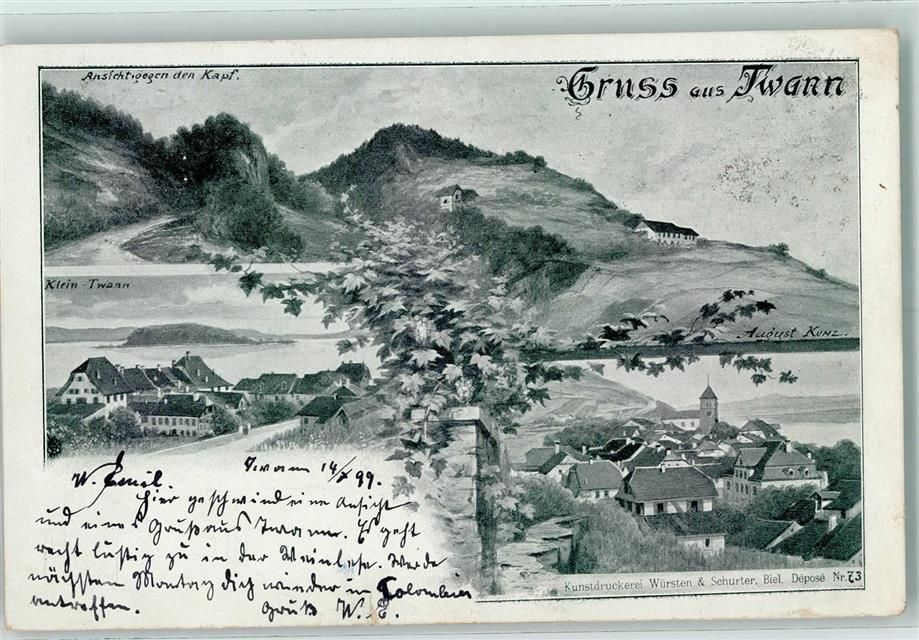 Ansicht gegen den Kapf.
Gruss aus Twann
Klein-Twann
August Kunz.
Twann 14/X 99.
W. Emil.
Hier geschwind eine Ansicht
und einen Gruß aus Twann. Es geht
recht lustig zu in der Weinlese. Werde
nächsten Montag dich wieder in Colombier
antreffen.
Gruß W. E.
Kunstdruckerei Würsten & Schurter, Biel. Déposé Nr. 73